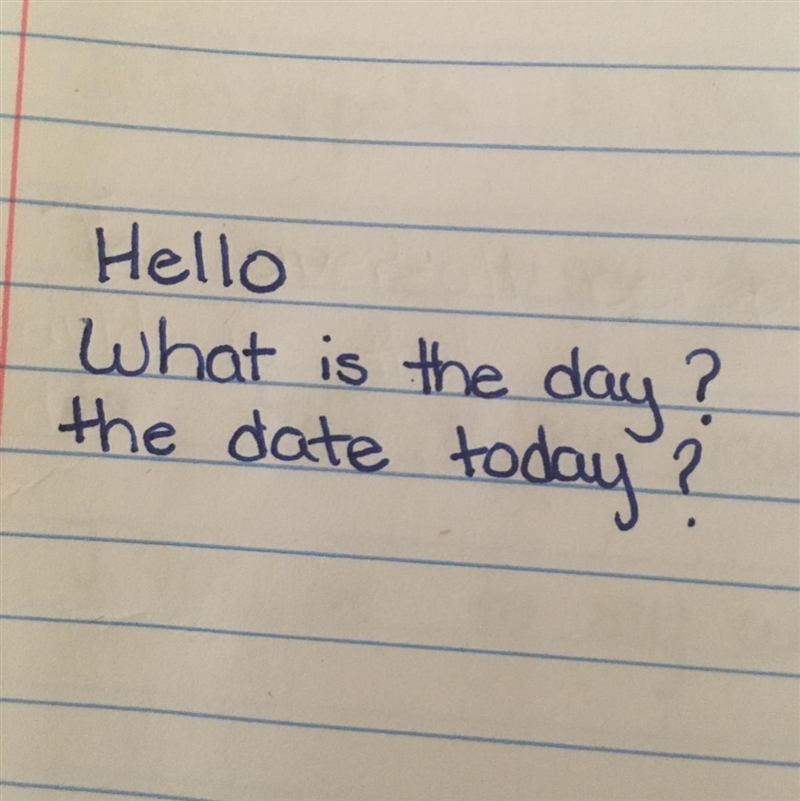 Hello
What is the day?
the date today?